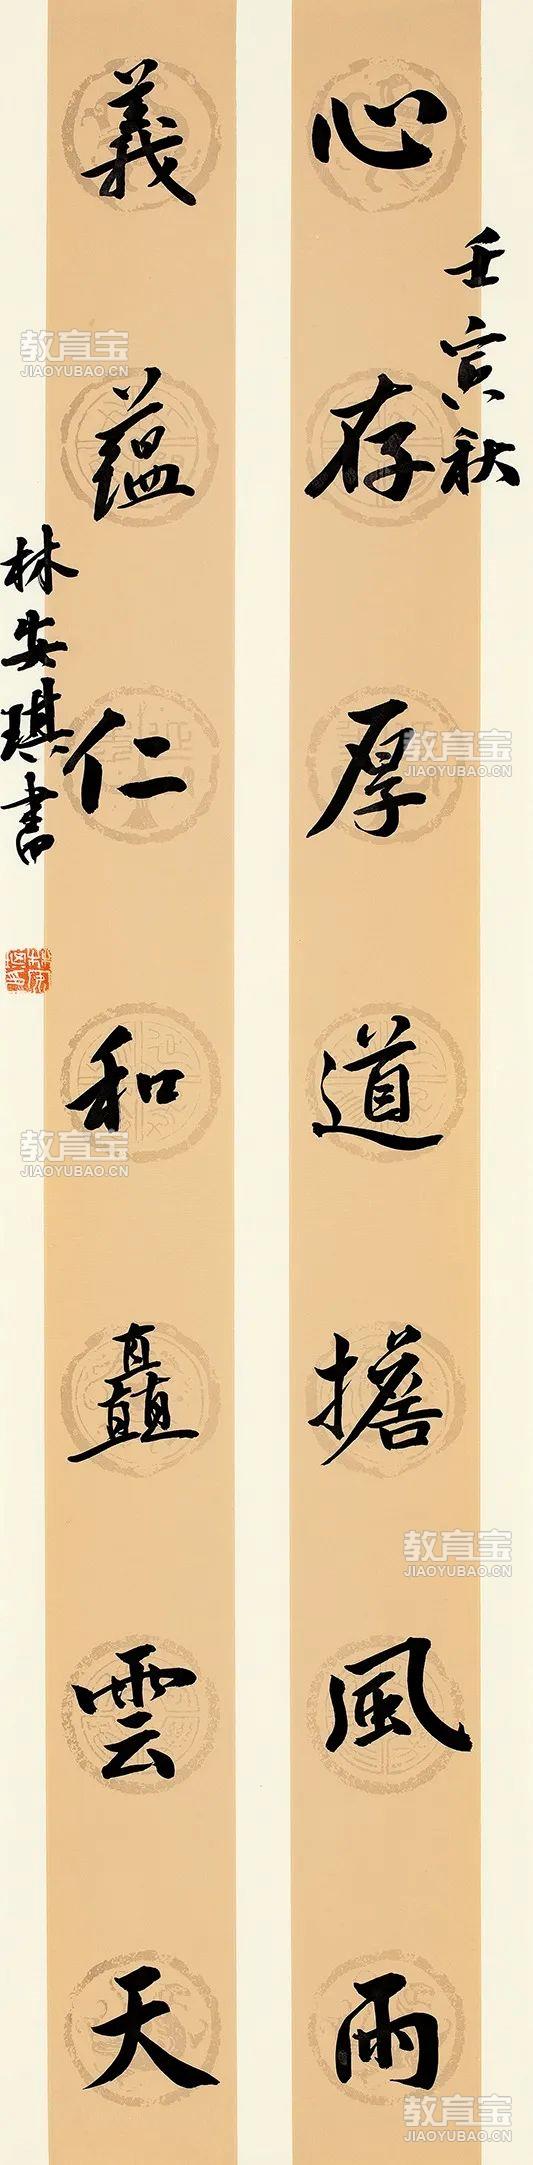 壬寅秋
心存厚道擔風雨
義蘊仁和矗雲天
林安琪書
教育宝
JIAOYUBAO.CN
教育宝
JIAOYUBAO.CN
教育宝
JIAOYUBAO.CN
教育宝
JIAOYUBAO.CN
教育宝
JIAOYUBAO.CN
教育宝
JIAOYUBAO.CN